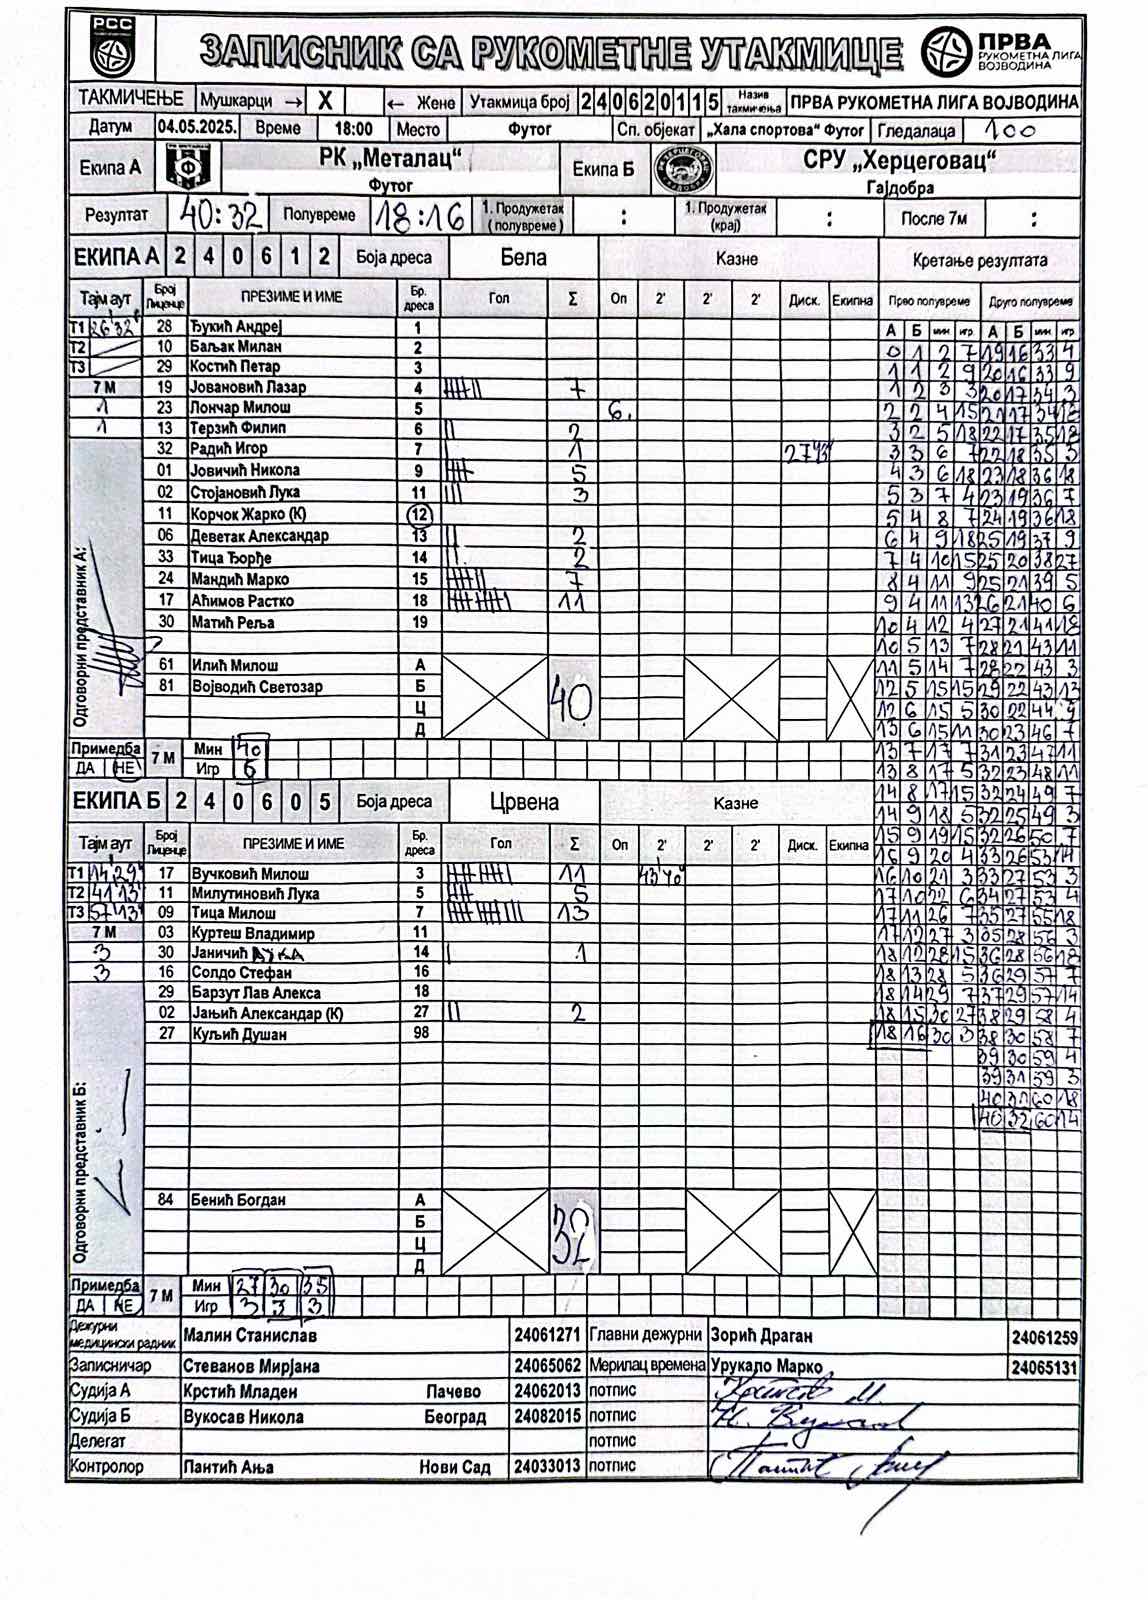 РСС
ЗАПИСНИК СА РУКОМЕТНЕ УТАКМИЦЕ
ПРВА
РУКОМЕТНА ЛИГА
ВОЈВОДИНА
ТАКМИЧЕЊЕ Мушкарци → X ← Жене Утакмица број 2 4 0 6 2 0 1 1 5 Назив такмичења ПРВА РУКОМЕТНА ЛИГА ВОЈВОДИНА
Датум 04.05.2025. Време 18:00 Место Футог Сп. објекат „Хала спортова“ Футог Гледалаца 100
Екипа А РК „Металац“ Футог Екипа Б СРУ „Херцеговац“ Гајдобра
Резултат 40:32 Полувреме 18:16 1. Продужетак (полувреме) : 1. Продужетак (крај) : После 7м :
ЕКИПА А 2 4 0 6 1 2 Боја дреса Бела Казне Кретање резултата
Тајм аут Број Лиценце ПРЕЗИМЕ И ИМЕ Бр. дреса Гол Σ Оп 2' 2' 2' Диск. Екипна Прво полувреме Друго полувреме
А Б мин игр А Б мин игр
Т1 26'32" 28 Ђукић Андреј 1
Т2 10 Баљак Милан 2
Т3 29 Костић Петар 3
7 М 19 Јовановић Лазар 4 7
1 23 Лончар Милош 5 6.
1 13 Терзић Филип 6 2
32 Радић Игор 7 1
01 Јовичић Никола 9 5
02 Стојановић Лука 11 3
11 Корчок Жарко (К) 12
06 Деветак Александар 13 2
33 Тица Ђорђе 14 2
24 Мандић Марко 15 7
17 Аћимов Растко 18 11
30 Матић Реља 19
61 Илић Милош А
81 Војводић Светозар Б 40
Ц
Д
Одговорни представник А:
Примедба ДА НЕ 7 М Мин 40
Игр 6
ЕКИПА Б 2 4 0 6 0 5 Боја дреса Црвена Казне
Тајм аут Број Лиценце ПРЕЗИМЕ И ИМЕ Бр. дреса Гол Σ Оп 2' 2' 2' Диск. Екипна
Т1 14'29" 17 Вучковић Милош 3 11 43'40"
Т2 41'13" 11 Милутиновић Лука 5 5
Т3 57'13" 09 Тица Милош 7 13
7 М 03 Куртеш Владимир 11
3 30 Јаничић ЛУКА 14 1
3 16 Солдо Стефан 16
29 Барзут Лав Алекса 18
02 Јањић Александар (К) 27 2
27 Куљић Душан 98
84 Бенић Богдан А
Б 32
Ц
Д
Одговорни представник Б:
Примедба ДА НЕ 7 М Мин 27 30 35
Игр 3 3 3
0 1 2 7 19 16 33 4
1 1 2 9 20 16 33 9
1 2 3 3 20 17 34 3
2 2 4 15 21 17 34 18
3 2 5 18 22 17 35 18
3 3 6 7 22 18 35 3
4 3 6 18 23 18 36 18
5 3 7 4 23 19 36 7
5 4 8 7 24 19 36 18
6 4 9 18 25 19 37 9
7 4 10 15 25 20 38 27
8 4 11 9 25 21 39 5
9 4 11 13 26 21 40 6
10 4 12 4 27 21 41 18
10 5 13 7 28 21 43 11
11 5 14 7 28 22 43 3
12 5 15 15 29 22 43 13
12 6 15 5 30 22 44 9
13 6 15 11 30 23 46 7
13 7 17 7 31 23 47 11
13 8 17 5 32 23 48 11
14 8 17 15 32 24 49 7
14 9 18 5 32 25 49 3
15 9 19 15 32 26 50 7
16 9 20 4 33 26 53 14
16 10 21 3 33 27 53 3
17 10 22 6 34 27 53 4
17 11 26 7 35 27 55 18
17 12 27 3 35 28 56 3
18 12 28 15 36 28 56 18
18 13 28 5 36 29 57 7
18 14 29 7 37 29 57 14
18 15 30 27 38 29 58 4
18 16 30 3 38 30 58 7
39 30 59 4
39 31 59 3
40 31 60 18
40 32 60 14
Дежурни медицински радник Малин Станислав 24061271 Главни дежурни Зорић Драган 24061259
Записничар Стеванов Мирјана 24065062 Мерилац времена Урукало Марко 24065131
Судија А Крстић Младен Пачево 24062013 потпис
Судија Б Вукосав Никола Београд 24082015 потпис
Делегат потпис
Контролор Пантић Ања Нови Сад 24033013 потпис